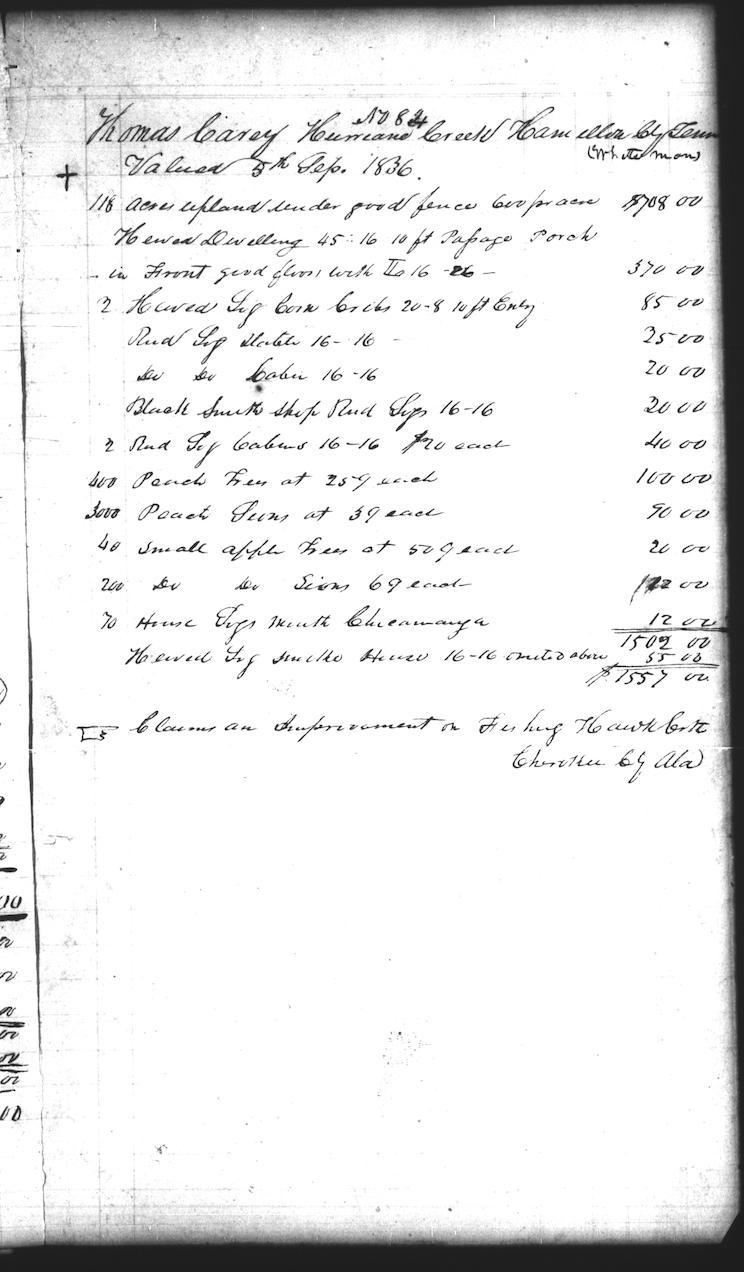 No 84
Thomas Carey Hurricane Creek Hamellon Cy Tenn
(White man)
Valued 5th Sep. 1836.
118 acres upland under good fence 600 pr acre $708 00
Hewed Dwelling 45-16 10 ft Passage Porch
in Front good floors with 16-26 - 370 00
2 Hewed Log Corn Cribs 20-8 10 ft Entry 85 00
Rnd Log Stable 16-16 - 25 00
Do Do Cabin 16-16 20 00
Black Smith Shop Rnd Logs 16-16 20 00
2 Rnd Log Cabins 16-16 $20 each 40 00
400 Peach Trees at 25¢ each 100 00
3000 Peach Sions at 3¢ each 90 00
40 Small apple Trees at 50¢ each 20 00
200 Do Do Sions 6¢ each 12 00
70 House Logs Mouth Chicamauga 12 00
1502 00
Hewed Log Smoke House 16-16 omited above 55 00
$1557 00
Claims an Improvement on Fishing Hawk Crk
Cherokee Cy Ala
00
00
00
00